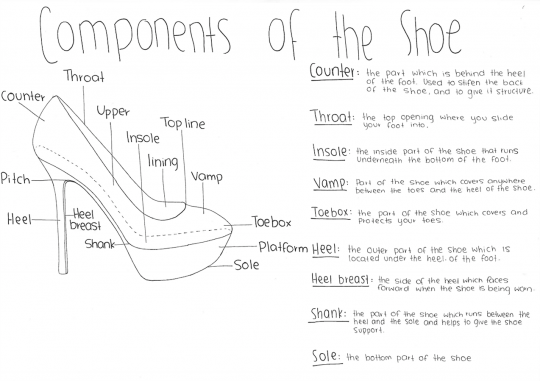 Components of the Shoe
Throat
Counter
Upper
Top line
Insole
lining
Vamp
Pitch
Heel
Heel
breast
Shank
Toebox
Platform
Sole
Counter: the part which is behind the heel
of the foot. Used to stifen the back
of the shoe, and to give it structure.
Throat: the top opening where you slide
your foot into.
Insole: the inside part of the shoe that runs
underneath the bottom of the foot.
Vamp: Part of the shoe which covers anywhere
between the toes and the heel of the shoe.
Toebox: the part of the shoe which covers and
protects your toes.
Heel: the outer part of the shoe which is
located under the heel of the foot.
Heel breast: the side of the heel which faces
forward when the shoe is being worn.
Shank: the part of the shoe which runs between the
heel and the sole and helps to give the shoe
support.
Sole: the bottom part of the shoe